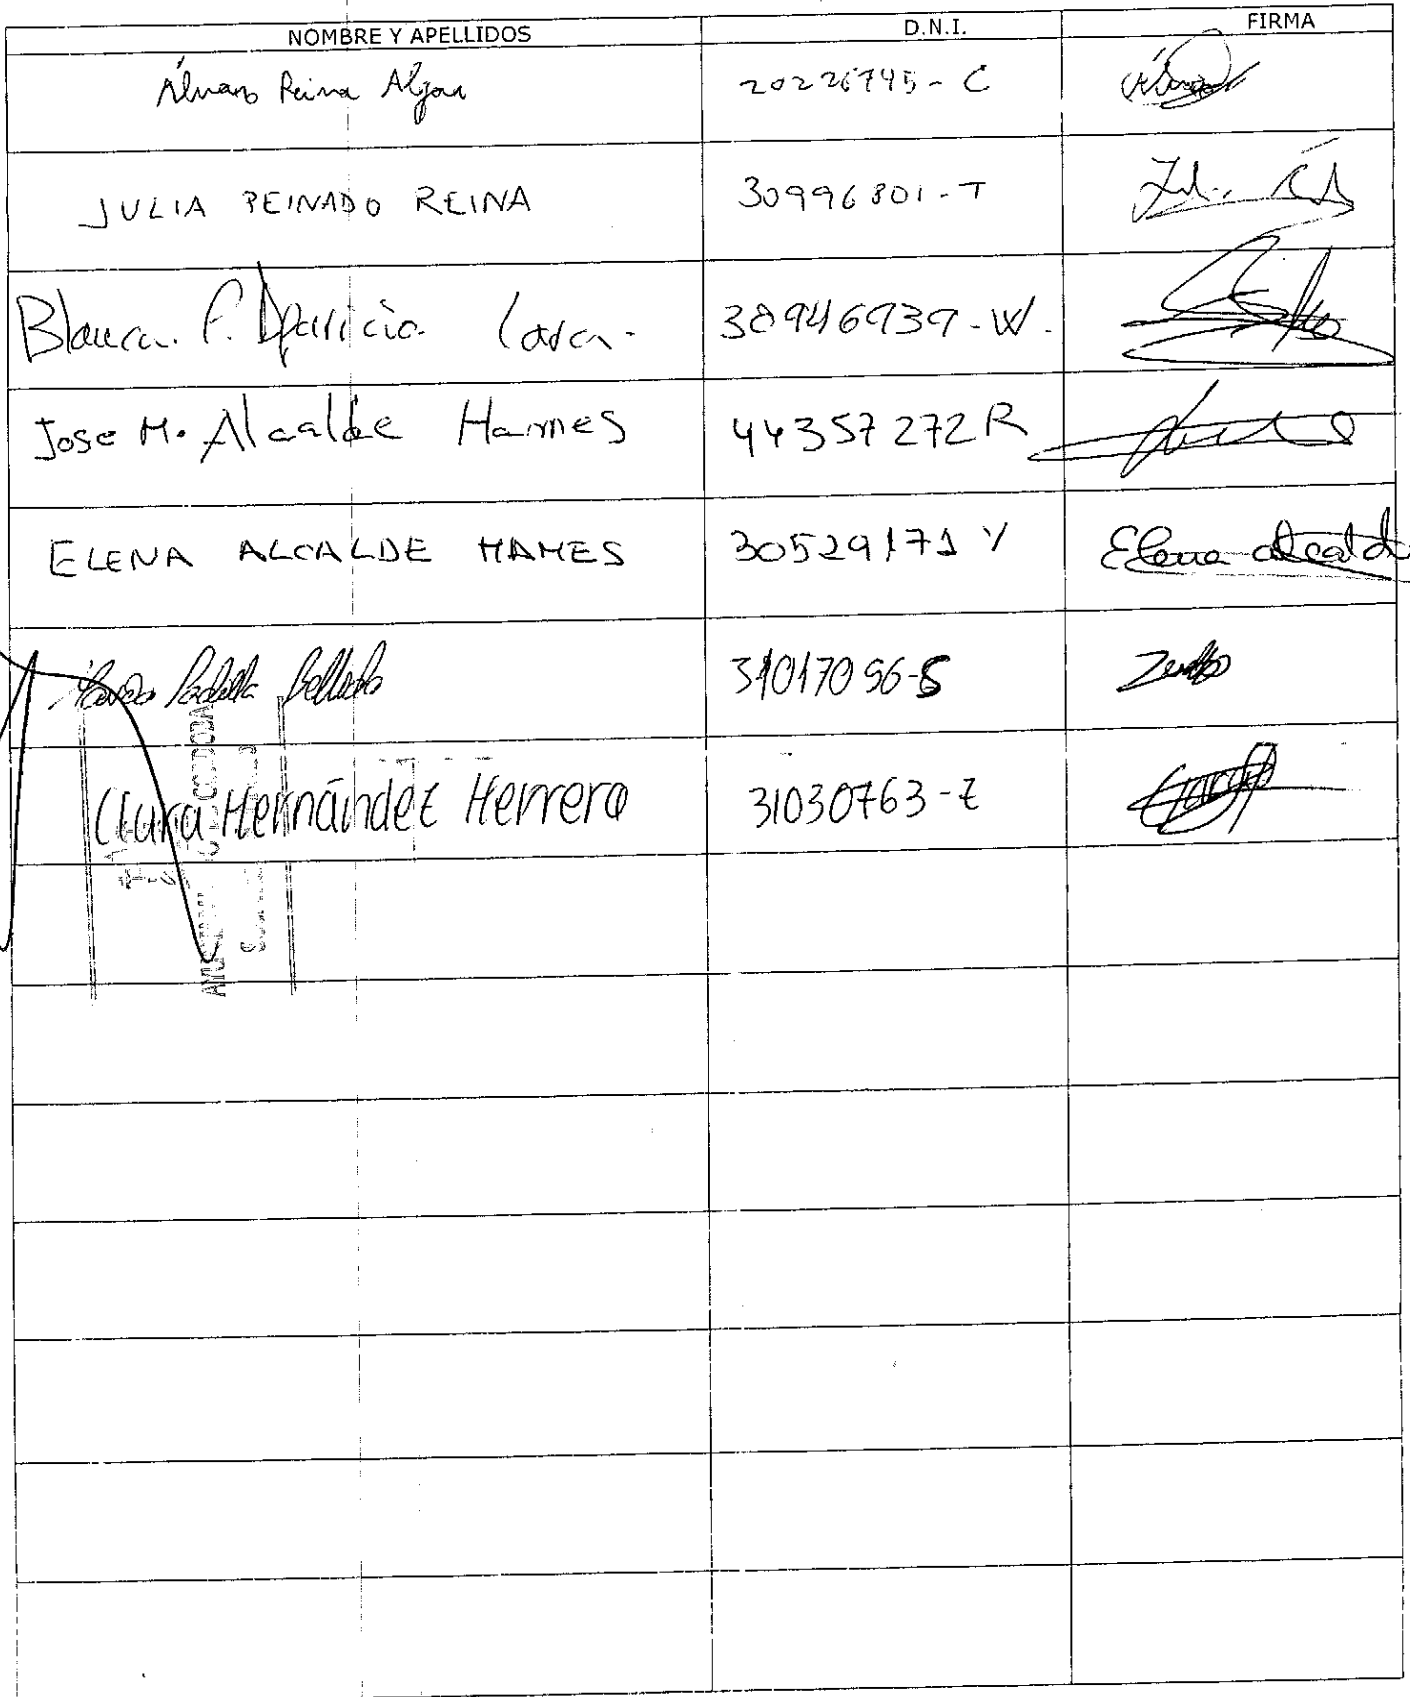 NOMBRE Y APELLIDOS D.N.I. FIRMA
Álvaro Reina Algar 20226745-C
JULIA PEINADO REINA 30996801-T
Blanca. P. Aparicio Lara. 30946939-W.
Jose M. Alcalde Hames 44357272R
ELENA ALCALDE HAMES 30529171 Y Elena Alcalde
Padilla Bellido
Clara Hernández Herrero 31030763-Z
CORDOBA